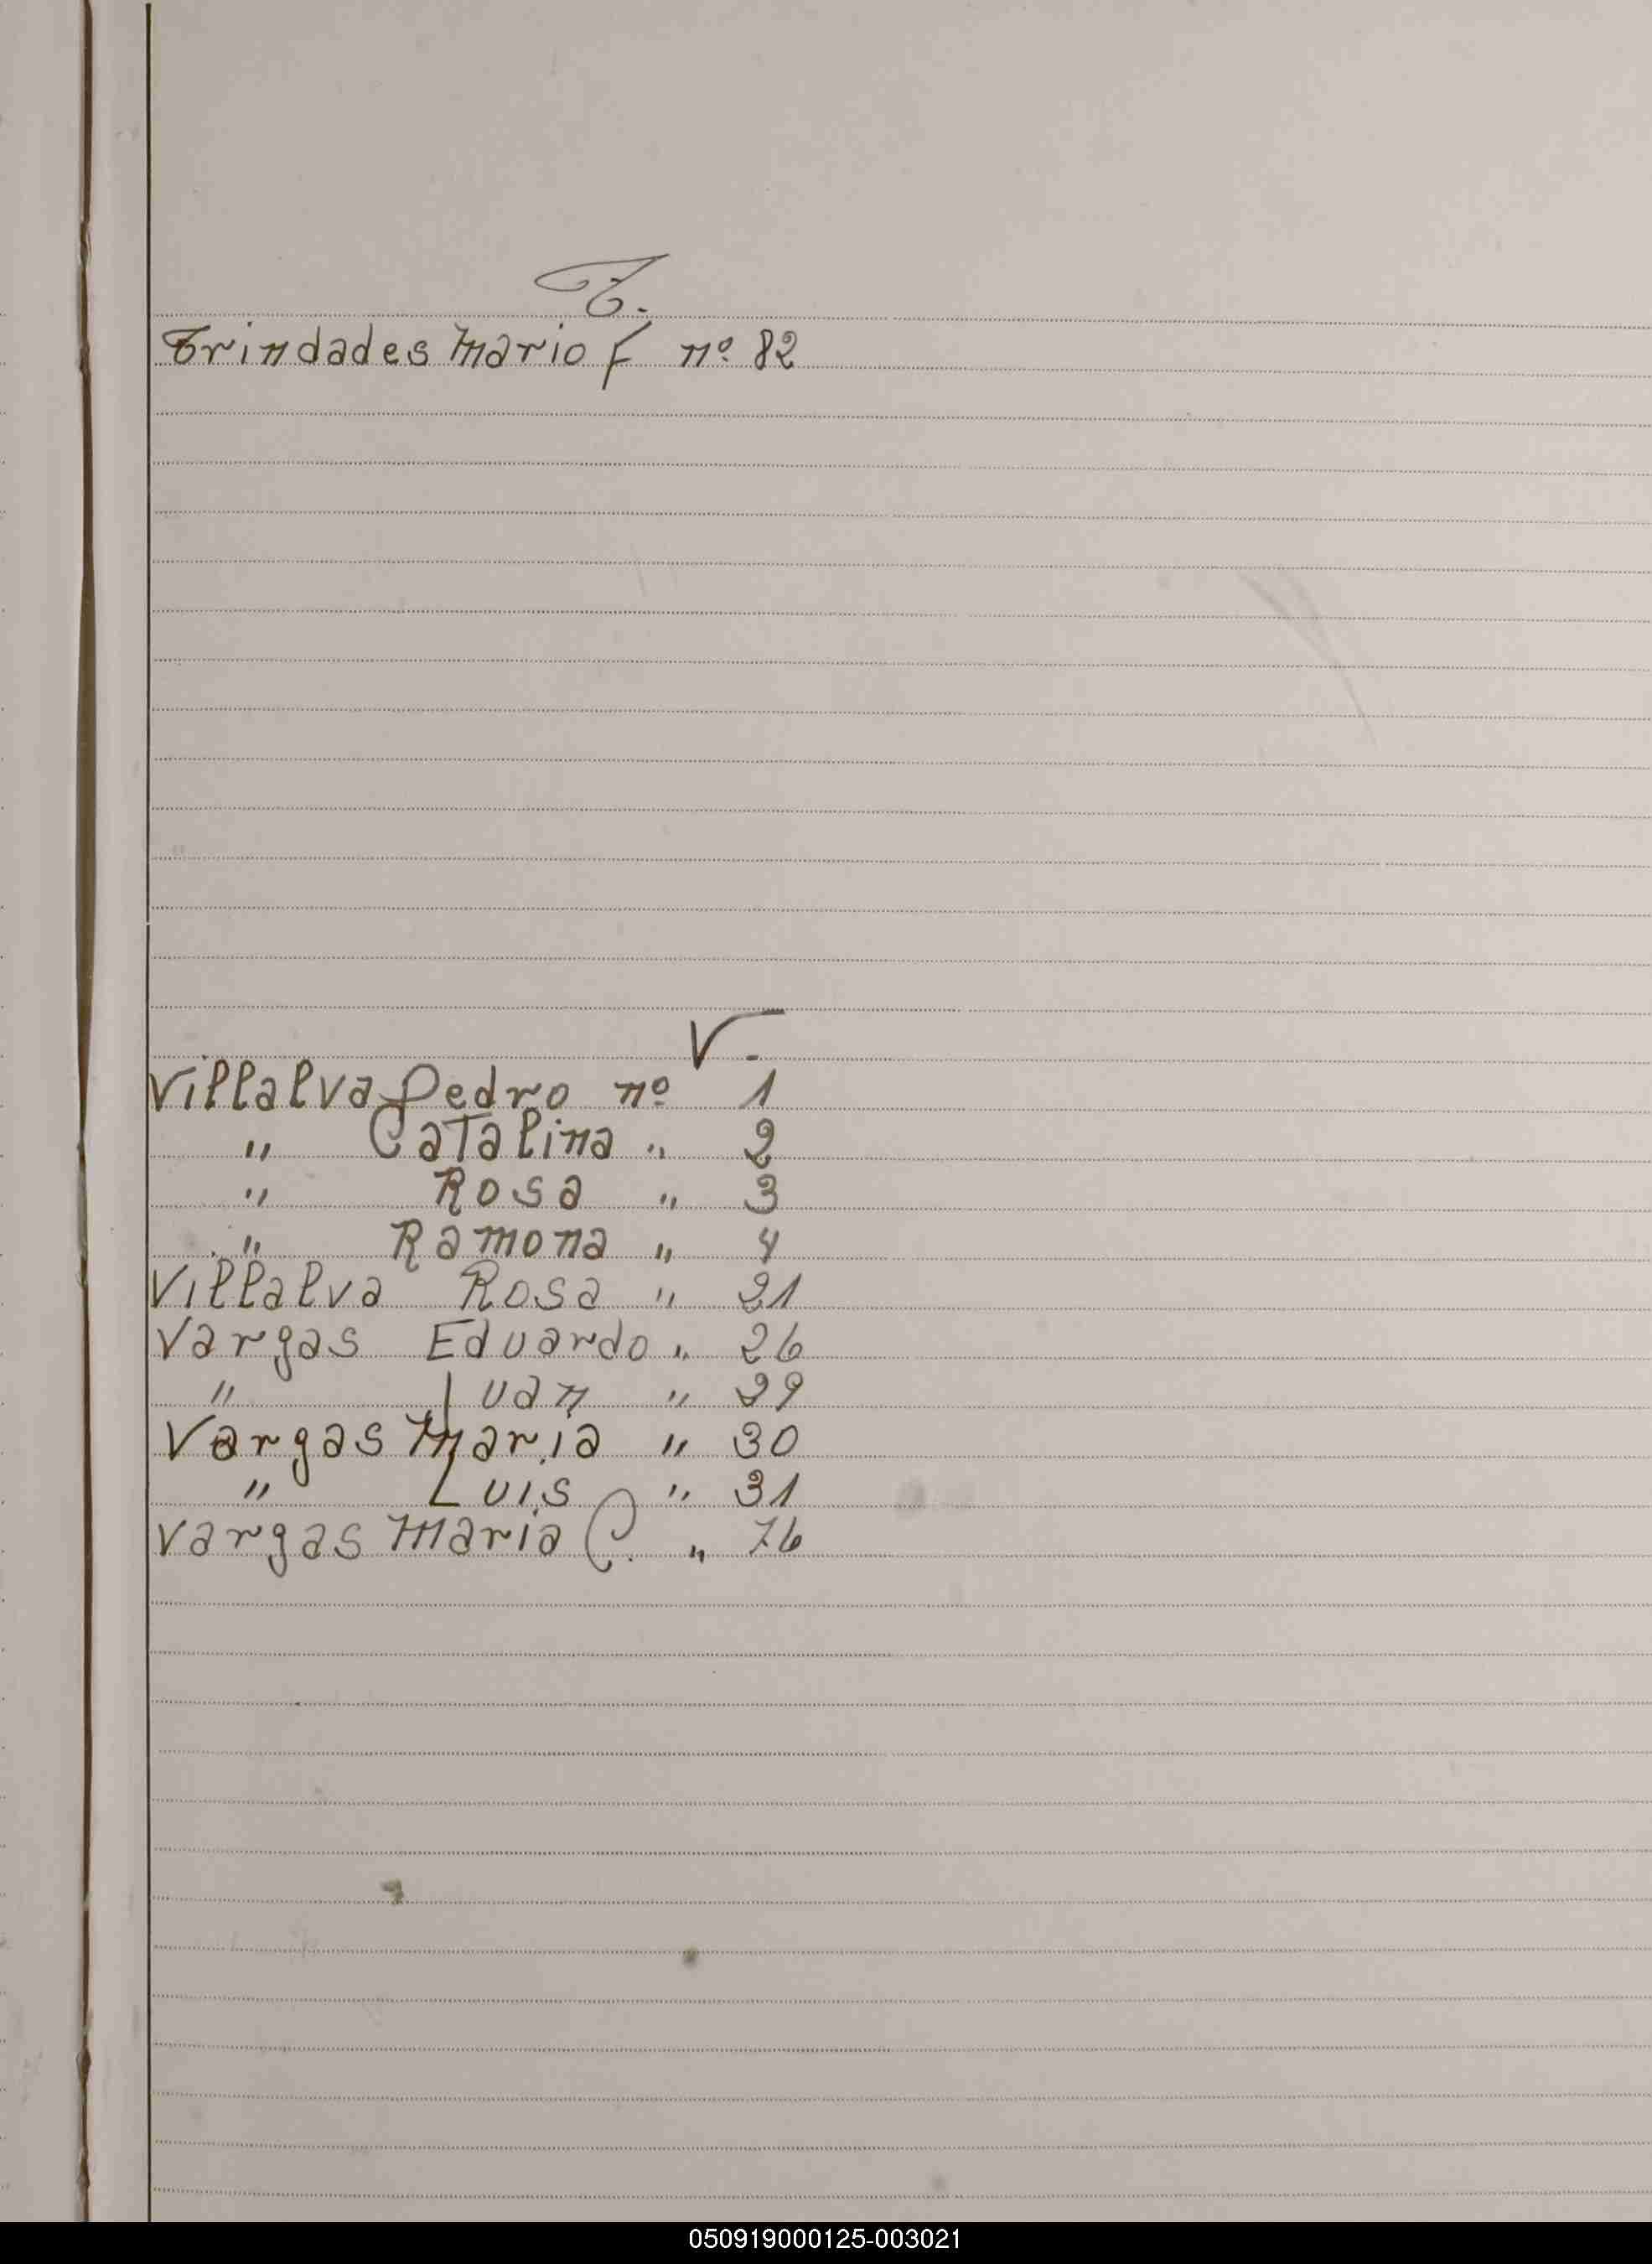 T.
Trindades Mario F nº 82
V.
Villalva Pedro nº 1
" Catalina " 2
" Rosa " 3
" Ramona " 4
Villalva Rosa " 21
Vargas Eduardo " 26
" Juan " 29
Vargas Maria " 30
" Luis " 31
Vargas Maria C. " 76
050919000125-003021